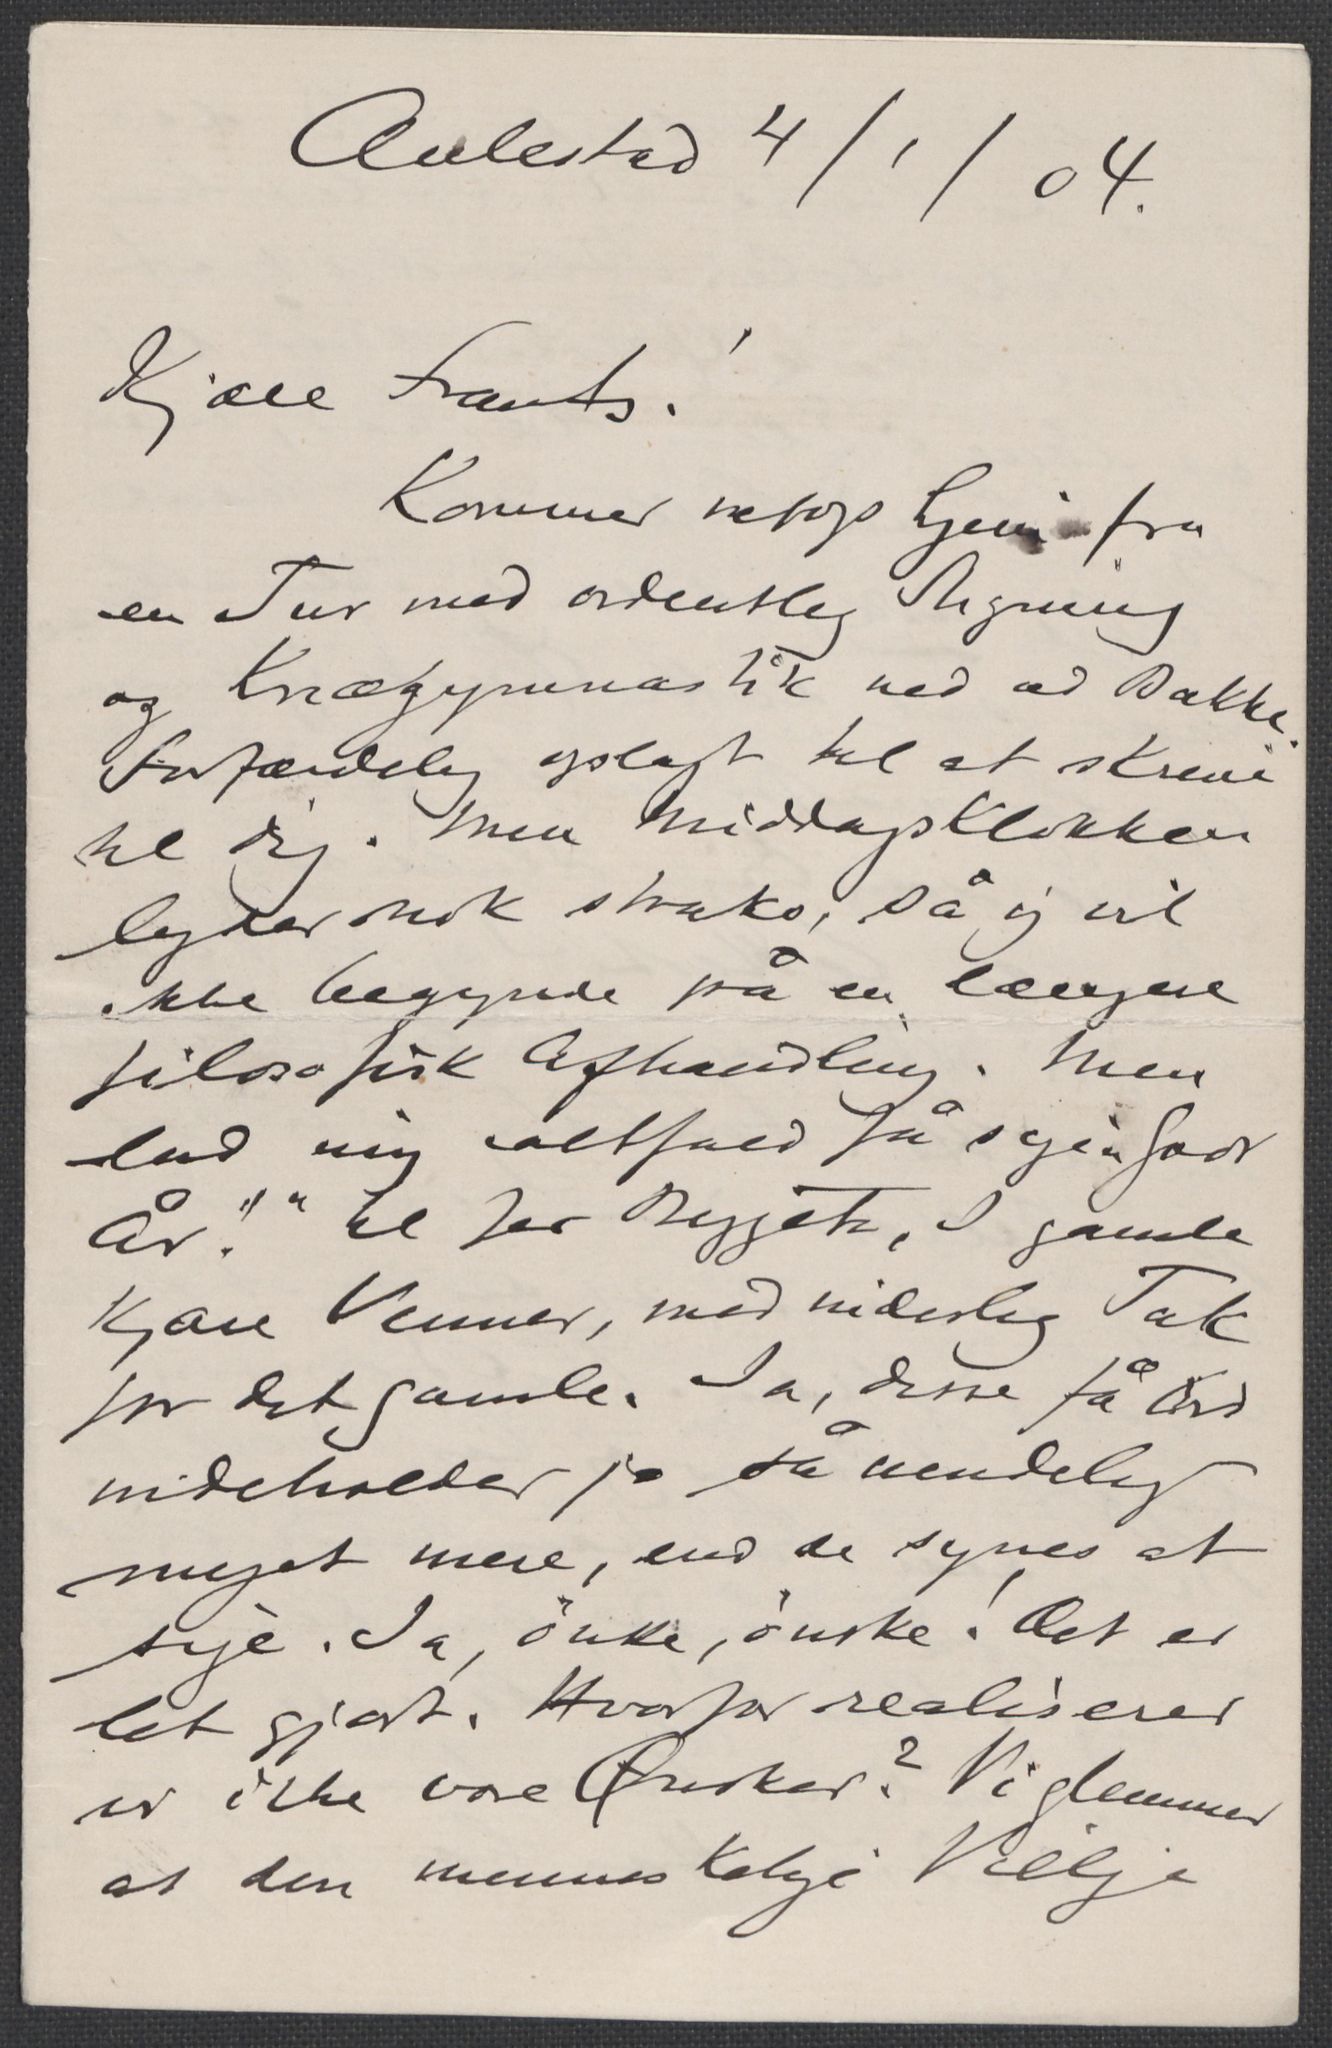 Aulestad 4/1/04.
Kjære Frants!
Kommer netop hjem fra
en Tur med ordentlig Stigning
og Knægymnastik ned ad Bakke.
Forfærdelig oplagt til at skrive
til dig. Men Middagsklokken
lyder nok straks, så jeg vil
ikke begynde på en længere
filosofisk Afhandling. Men
lad mig altfald få sige "Godt
År!" til Jer Begge to, I gamle
kjære Venner, med inderlig Tak
for det gamle. Ja, disse få Ord
indeholder jo så uendelig
meget mere, end de synes at
sige. Ja, önske, önske! Det er
let gjort. Hvorfor realiserer
vi ikke vore Ønsker? Vi glemmer
at den menneskelige Vilje